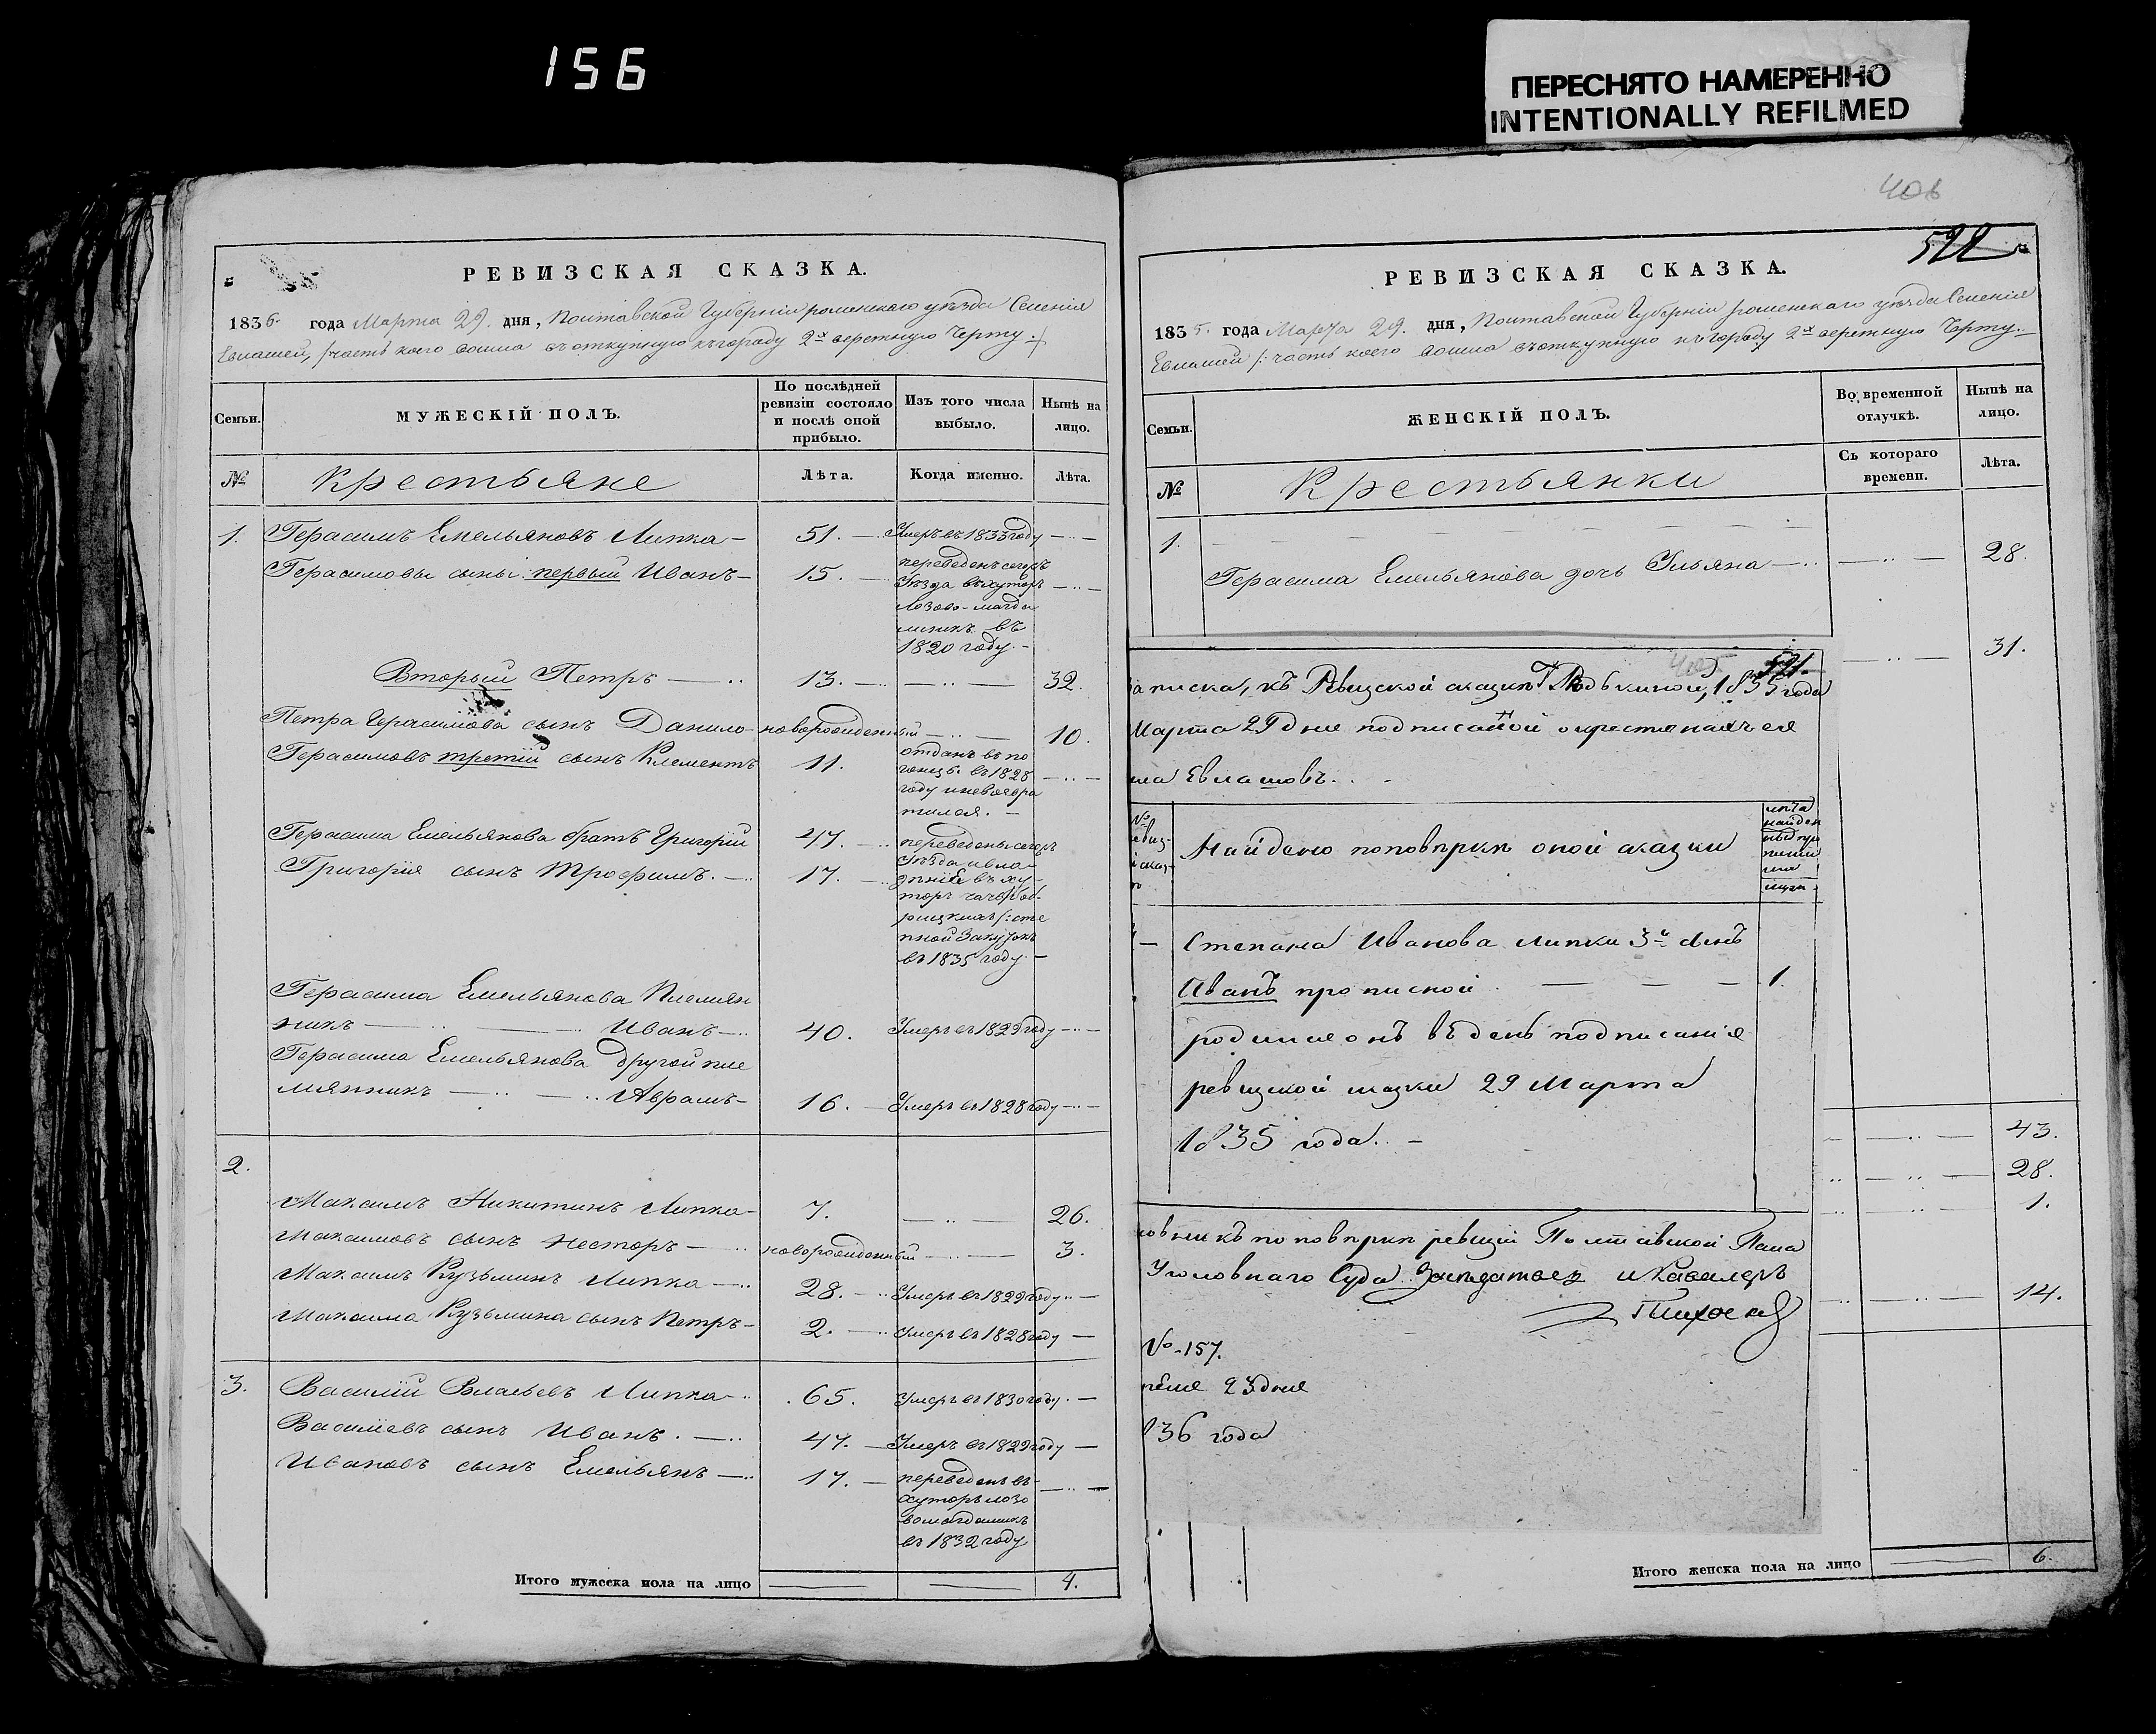 156
ПЕРЕСНЯТО НАМЕРЕННО
INTENTIONALLY REFILMED
РЕВИЗСКАЯ СКАЗКА.
1835 года Марта 29. дня, Полтавской Губерніи роменскаго уѣзда Селенія
Евлашей, /: часть коего вошла въ откупную къ городу 2х верстную Черту :/
Семьи.
МУЖЕСКІЙ ПОЛЪ.
По послѣдней ревизіи состояло и послѣ оной прибыло.
Изъ того числа выбыло.
Нынѣ на лицо.
№
Крестьяне
Лѣта.
Когда именно.
Лѣта.
1. Герасимъ Емельяновъ Липка 51. Умеръ въ 1833 году
Герасимовы сыны: первый Иванъ 15. переведенъ сегожъ
Уѣзда въ хуторъ
Лозово-
въ
1820 году.
Вторый Петръ 13. 32.
Петра Герасимова сынъ Данило новорожденный 10.
Герасимовъ третій сынъ Климентъ 11. отданъ въ по
гонцы въ 1828
году и невозвра
тился.
Герасима Емельянова братъ Григорій 47. переведены сегожъ
Григорія сынъ Трофимъ. 17. Уѣзда
въ ху-
торъ
/: сте
пной
въ 1835 году
Герасима Емельянова Племян
никъ Иванъ 40. Умеръ въ 1829 году
Герасима Емельянова другой пле
мянникъ Аврамъ 16. Умеръ въ 1828 году
2.
Максимъ Никитинъ Липка 7. 26.
Максимовъ сынъ Несторъ новорожденный 3.
Максимъ Кузьминъ Липка 28. Умеръ въ 1829 году
Максима Кузьмина сынъ Петръ 2. Умеръ въ 1828 году
3. Василій Власьевъ Липка 65. Умеръ въ 1830 году.
Васильевъ сынъ Иванъ. 47. Умеръ въ 1829 году
Ивановъ сынъ Емельянъ 17. переведенъ въ
хуторъ лозо
въ 1832 году
Итого мужеска пола на лицо 4.
406
522
РЕВИЗСКАЯ СКАЗКА.
1835. года Марта 29. дня, Полтавской Губерніи роменскаго уѣзда Селенія
Евлашей /: часть коего вошла въ откупную къ городу 2х верстную Черту :/
Семьи.
ЖЕНСКІЙ ПОЛЪ.
Во временной отлучкѣ.
Нынѣ на лицо.
№
Крестьянки
Съ котораго времени.
Лѣта.
1.
Герасима Емельянова дочь Ульяна 28.
31.
405
521.
записка, къ Ревизской сказкѣ 1835 года
Марта 29 дня подписаной о крестьянахъ ея
Евлашовъ.
№
Найдено по повѣркѣ оной сказки
Степана Иванова Липки 3й сынъ
Иванъ прописной 1.
родился онъ въ день подписанія
ревизской сказки 29 Марта
1835 года.
43.
28.
1.
по повѣркѣ ревизіи Полтавской Пала
Уголовнаго Суда Засѣдатель и Кавалеръ
14.
№ 157.
23 дня
836 года
Итого женска пола на лицо 6.